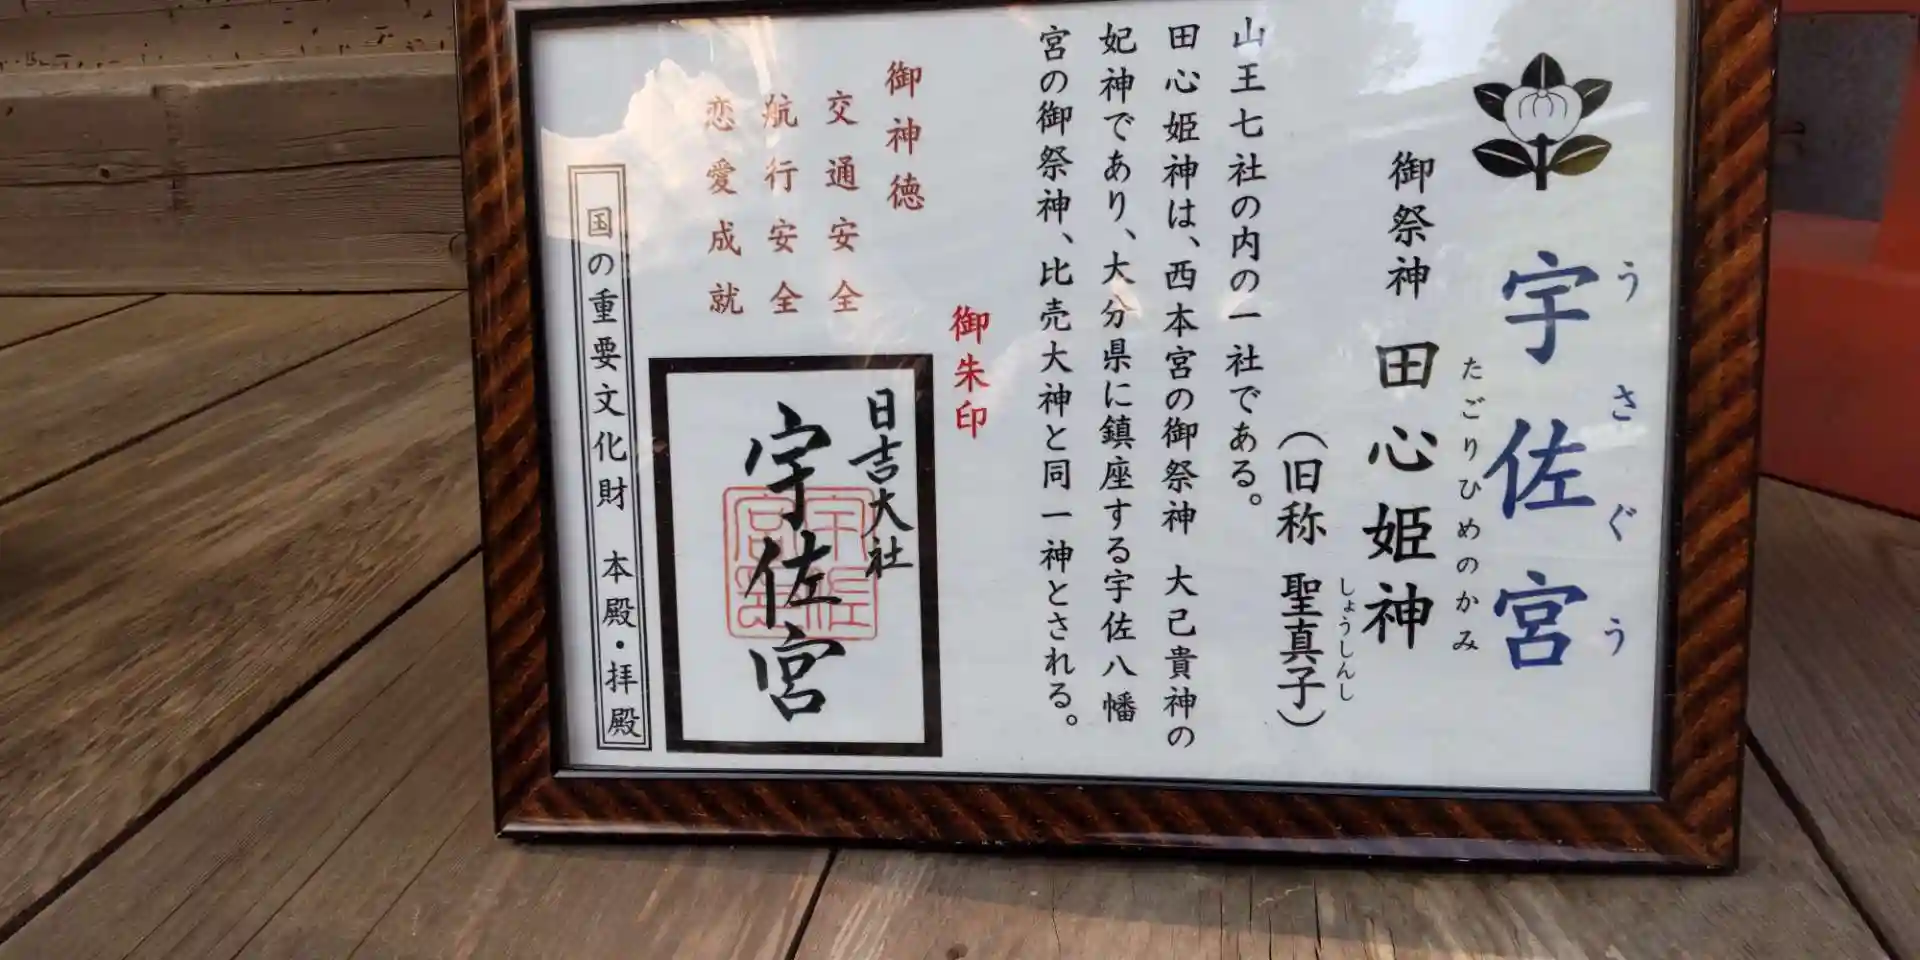 宇佐宮
うさぐう
御祭神 田心姫神
たごりひめのかみ
(旧称 聖真子)
しょうしんし
山王七社の内の一社である。
田心姫神は、西本宮の御祭神 大己貴神の
妃神であり、大分県に鎮座する宇佐八幡
宮の御祭神、比売大神と同一神とされる。
御朱印
御神徳
交通安全
航行安全
恋愛成就
日吉大社
宇佐宮
宇佐宮
国の重要文化財 本殿・拝殿